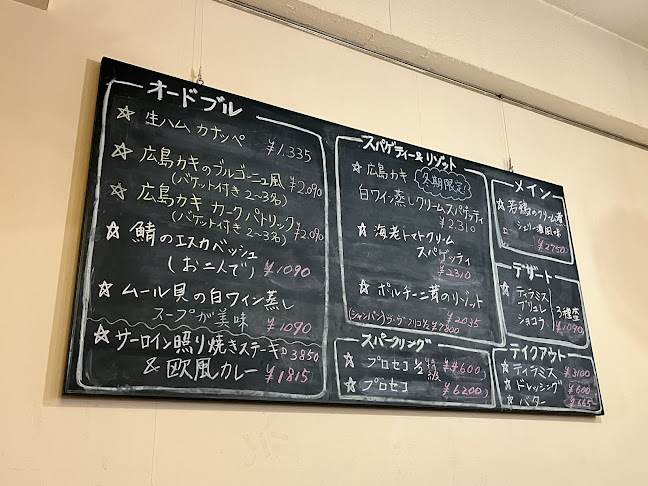 オードブル
☆ 生ハム カナッペ ¥1.335
☆ 広島カキのブルゴーニュ風
(バケット付き 2〜3名) ¥2.090
☆ 広島カキ カークパトリック
(バケット付き 2〜3名) ¥2.090
☆ 鯖のエスカベッシュ
(お二人で) ¥1090
☆ ムール貝の白ワイン蒸し
スープが美味 ¥1090
☆ サーロイン照り焼きステーキ 3850
& 欧風カレー ¥1815
スパゲティー&リゾット
☆ 広島カキ 冬期限定!
白ワイン蒸しクリームスパゲッティ
¥2.310
☆ 海老トマトクリーム
スパゲッティ
¥2310
☆ ポルチーニ茸のリゾット
¥2035
(シャンパン) 1/2 ¥7800
スパークリング
☆ プロセコ 1/2 ¥4600
☆ プロセコ ¥6200
メイン
☆ 若鶏のクリーム煮
シェリー酒風味
¥2750
デザート
☆ ティラミス
ブリュレ
ショコラ
3種盛
¥1090
テイクアウト
☆ ティラミス ¥3100
☆ ドレッシング ¥600
☆ バター ¥665